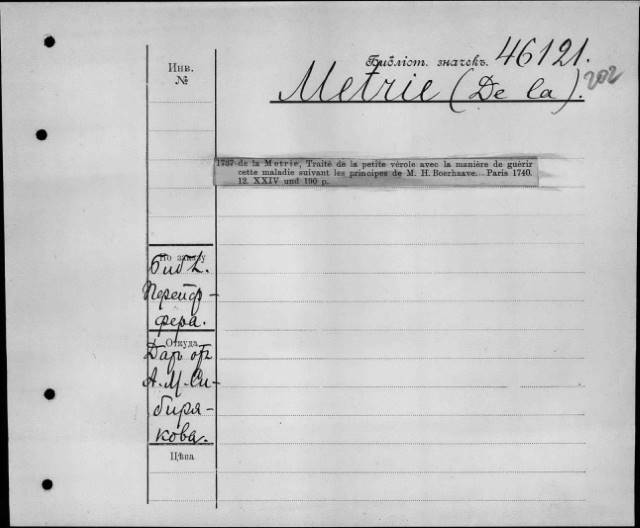 Инв.
№
Библіот. значекъ. 46121.
202
Metrie (De la).
1787 de la Metrie, Traité de la petite vérole avec la manière de guérir
cette maladie suivant les principes de M. H. Boerhaave. Paris 1740.
12. XXIV und 190 p.
По заказу
Библ.
Перейф-
фера.
Откуда
Даръ отъ
А. М. Си-
биря-
кова.
Цѣна